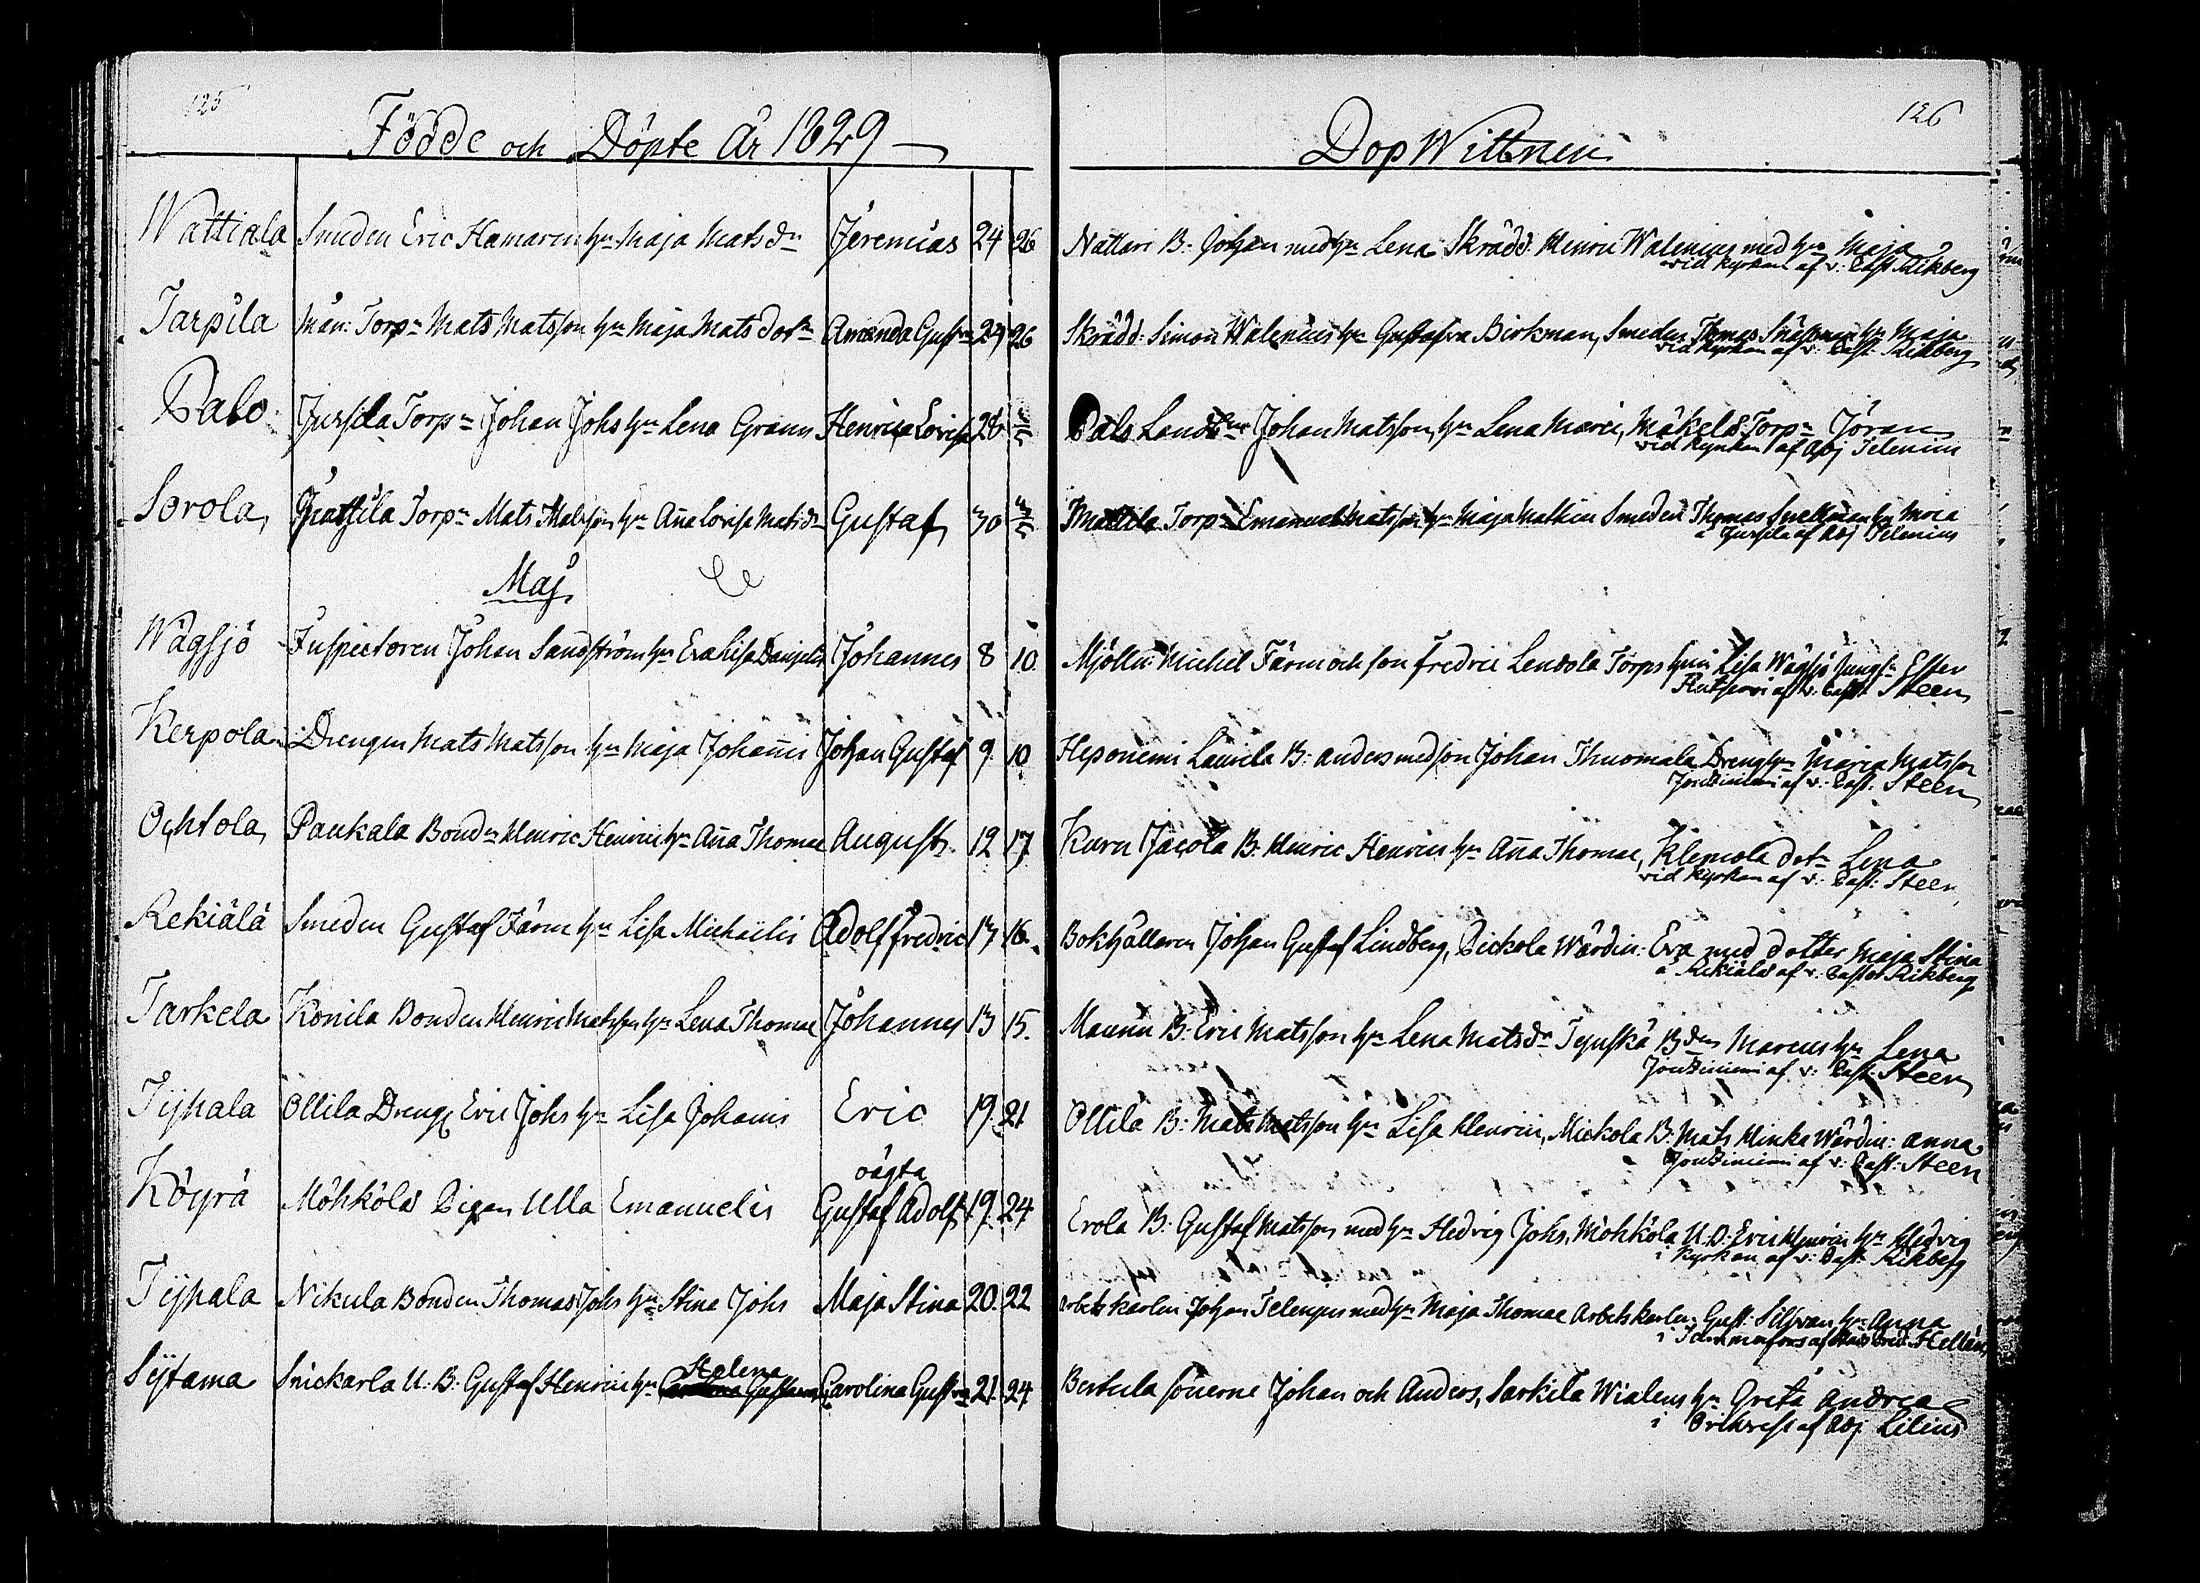 125
Födde och Döpte År 1829
Wattiala Smeden Eric Hamaren hu Maja Mats dr Jeremias 24 26
Tarpila Mån: Torpn Mats Matsson hu Maja Mats dotr Amanda Gustva 24 26
Palo Jursila Torpn Johan Johs hu Lena Grann Henrica Lovisa 28 3/5
Sorola Torpn Mats hu Aña Lovisa Matsdr Gustaf 30 3/5
Maj
Wågsjö Inspectoren Johan Sandström hu Eva Lisa Danjelis Johannes 8 10
Kerpola Drengen Mats Matsson hu Maja Johañis Johan Gustaf 9 10
Ochtola Paukala Bondn Henric Henrici hu Aña Thomæ August 12 17
Rekiälä Smeden Gustaf Färm hu Lisa Michaelis Adolf Fredric 13 16
Tarkela Konila Bonden Henric Matsson hu Lena Thomæ Johannes 13 15
Tyhala Ollila Dreng Eric Johs hu Lisa Johanis Eric 19 21
oägta
Köyrä Möhkölä Pigan Ulla Emanuelis Gustaf Adolf 19 24
Tyhala Nikula Bonden Thomas Johs hu Stina Johs Maja Stina 20 22
Helena
Sytama Snickarla U.B: Gustaf Henrici hu Carolina Gustva 21 24
126
Dop Wittnen
Nattari B: Johan med hu Lena Skrädd: Henric Walenius med hu Maja
vid kyrkan af v: Past Rikberg
Skrädd: Simon Walenius hu Gustafva Birkman, Smeden Thomas hu Maja
vid kyrkan af v: Past: Rikberg
Pals Johan Matsson, hu Lena Marci, Mäkelä Torpn Jöran
vid kyrkan af Adj Telenius
Mattila Torpn Emanuel Matsson hu Maja Smeden Thomas Snellman hu Maria
i Jursila af Adj Telenius
Mjölln: Michel Färm och son Fredric Lendola Torps hu Lisa Wågsjö Jungfr Ester
af v: Past Steen
Heponiemi Laurila B: Anders med son Johan Thuomala Dreng hu Maria Matsson
Joutsiniemi af v: Past: Steen
Kuru Jacola B: Henric Henrici hu Aña Thomæ, Klemola dotr Lena
vid kyrkan af v: Past: Steen
Bokhållaren Johan Gustaf Lindberg, Pickola Wärdin: Eva med dotter Maja Stina
å Rekiälä af v: Pastor Rikberg
Maunu B: Eric Matsson hu Lena Matsdr Tynskä Bden Marcus hu Lena
Joutsiniemi af v: Past: Steen
Ollila B: Mats Matsson hu Lisa Henrici, Mickola B: Mats Hinka Wärdin: Anna
Joutsiniemi af v: Past: Steen
Erola B: Gustaf Matsson med hu Hedvig Johs, Möhköla U.B: Eric Henrici hu Hedvig
i kyrkan af v: Past Rikberg
Arbetskarlen Johan Telenius med hu Maja Thomæ Arbetskarlen Gust: Silfvan hu Anna
i Tammerfors af Hellén
Bertula sönerne Johan och Anders, Sarkila hu Greta Andrea
i Orihvesi af Adj Lilius